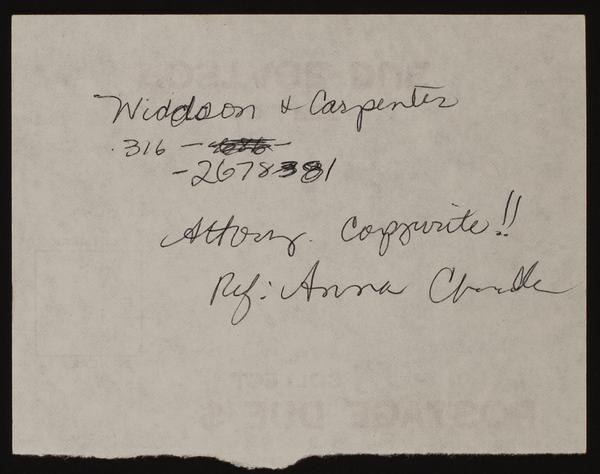 Widdoson & Carpenter
316 -
- 2678381
Attorny. Copywrite!!
Ref: Anna